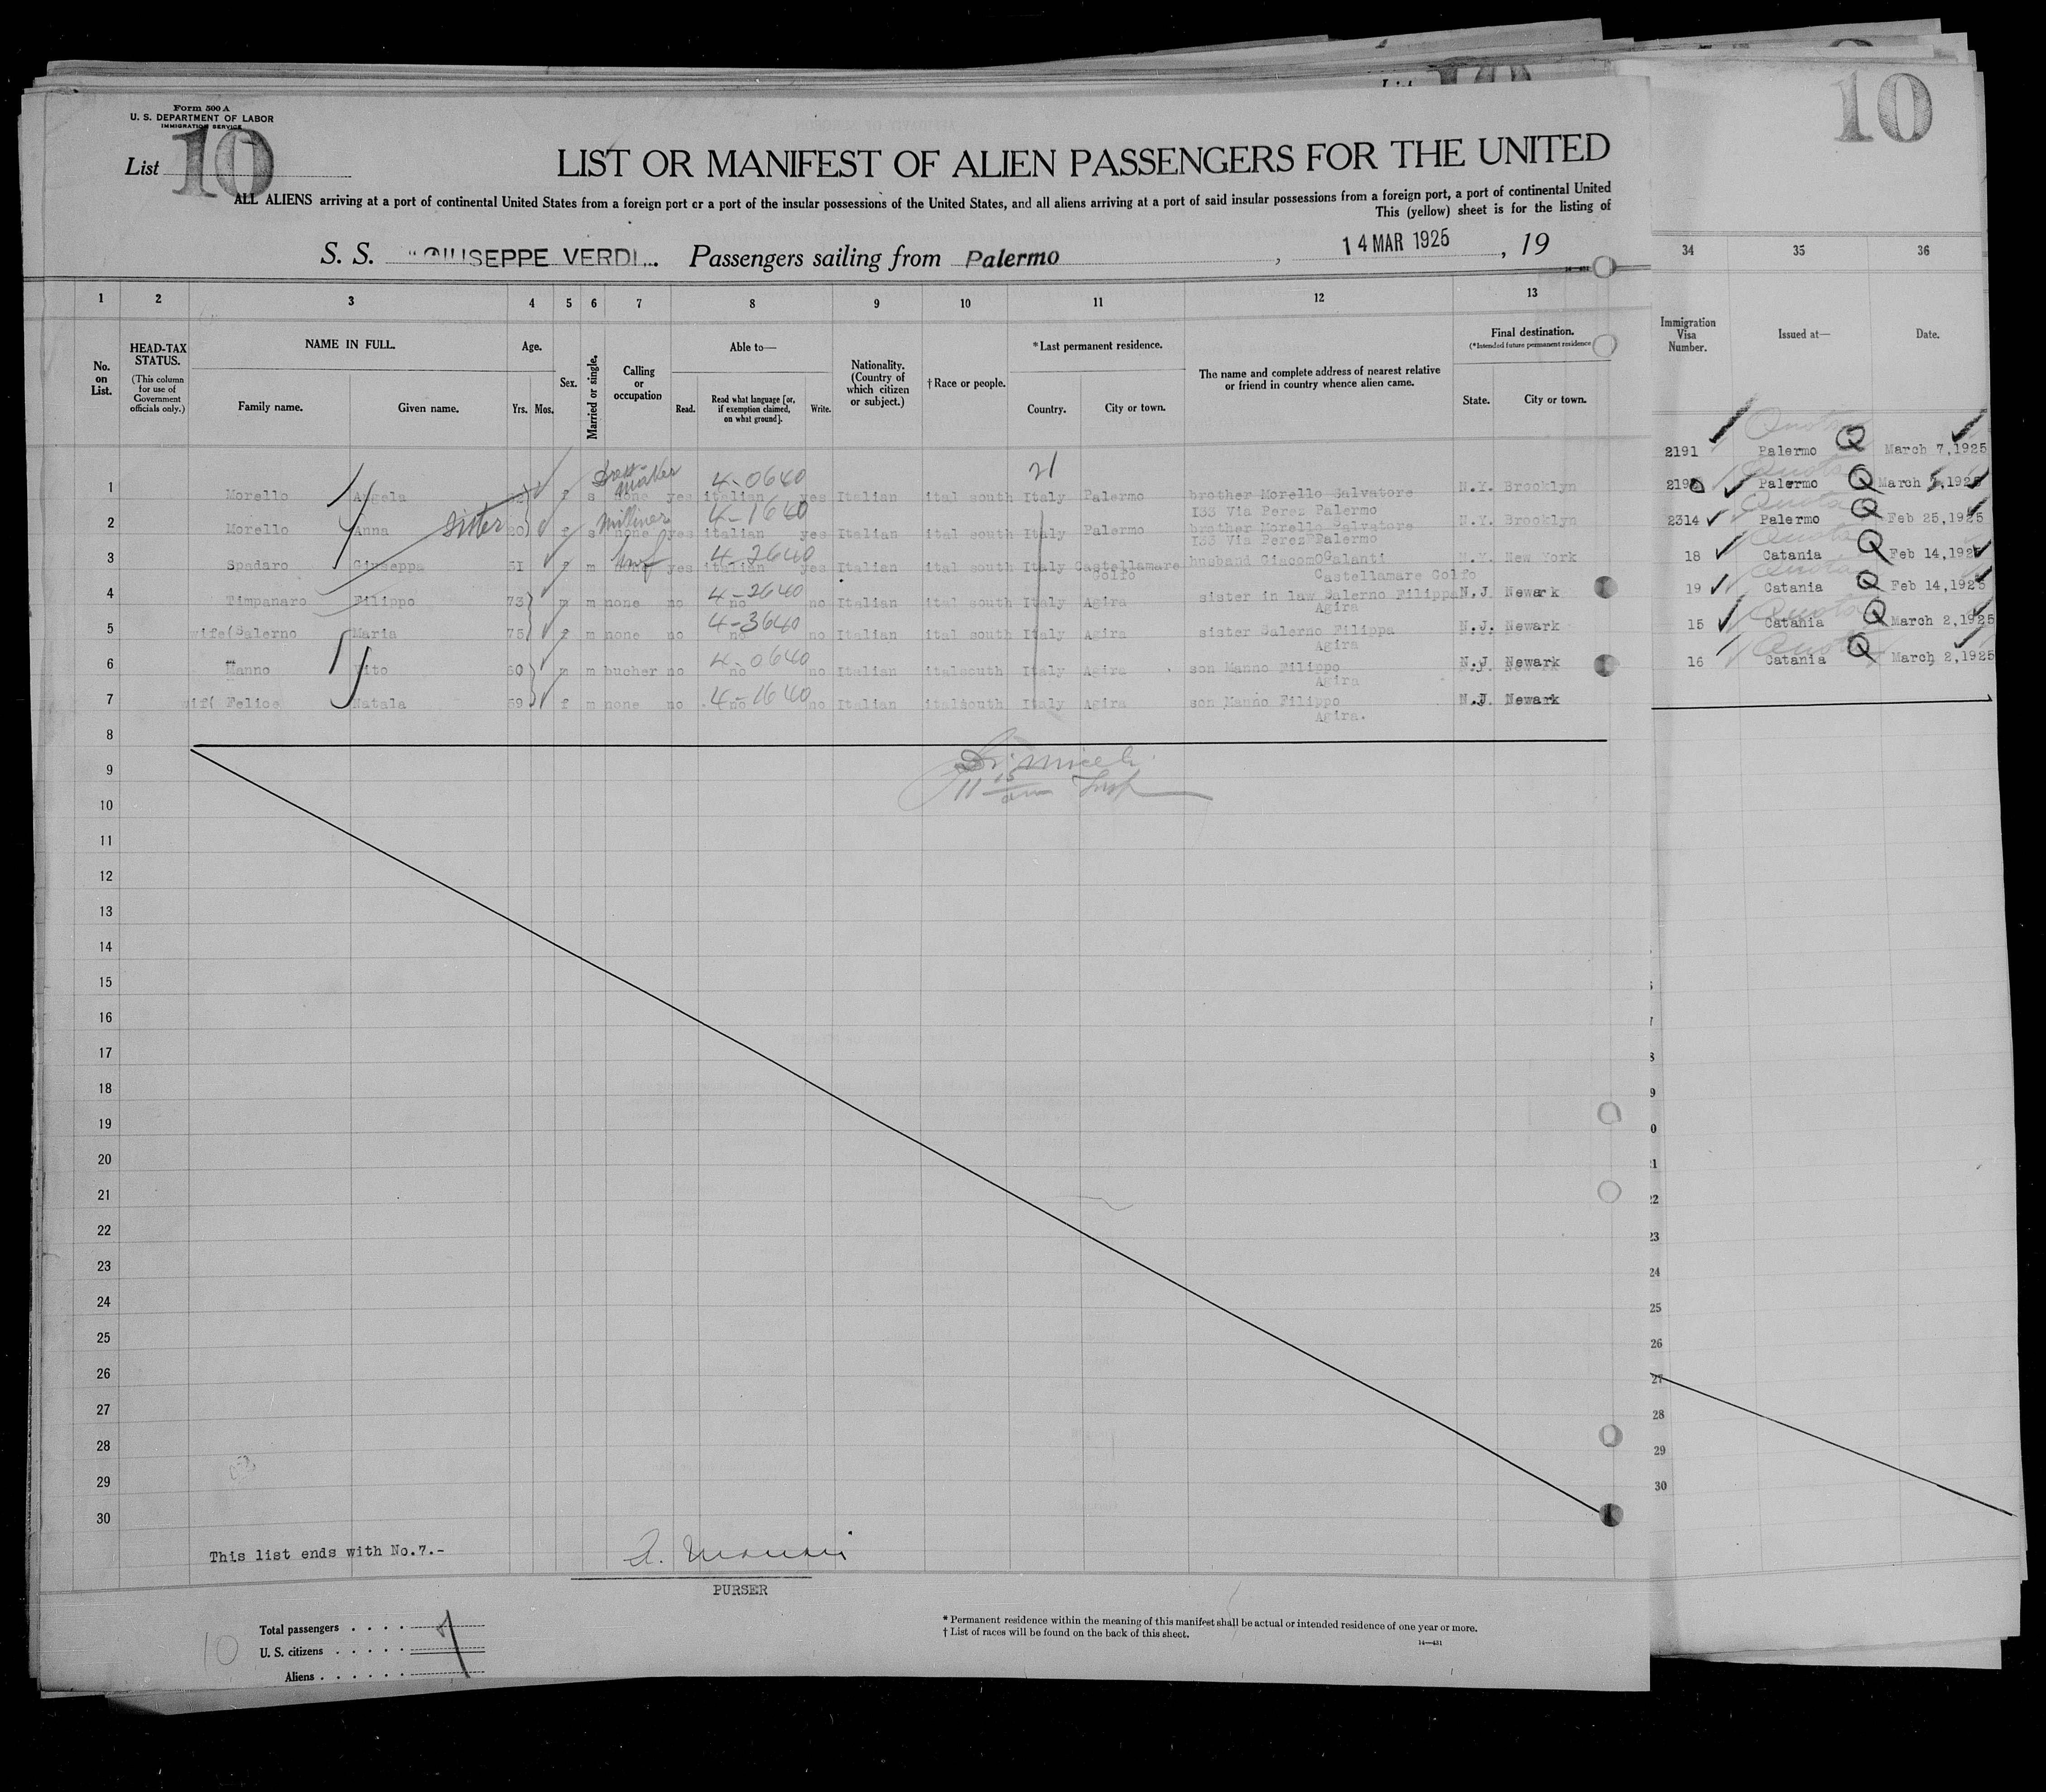 Form 500 A
U. S. DEPARTMENT OF LABOR
IMMIGRATION SERVICE
List 10
10
LIST OR MANIFEST OF ALIEN PASSENGERS FOR THE UNITED
ALL ALIENS arriving at a port of continental United States from a foreign port or a port of the insular possessions of the United States, and all aliens arriving at a port of said insular possessions from a foreign port, a port of continental United
This (yellow) sheet is for the listing of
S. S. "GIUSEPPE VERDI" Passengers sailing from Palermo, 14 MAR 1925, 19
1 2 3 4 5 6 7 8 9 10 11 12 13 34 35 36
No. on List.
HEAD-TAX STATUS.
(This column for use of Government officials only.)
NAME IN FULL.
Family name. Given name.
Age.
Yrs. Mos.
Sex.
Married or single.
Calling or occupation
Able to—
Read. Read what language [or, if exemption claimed, on what ground]. Write.
Nationality. (Country of which citizen or subject.)
† Race or people.
* Last permanent residence.
Country. City or town.
The name and complete address of nearest relative or friend in country whence alien came.
Final destination.
(*Intended future permanent residence
State. City or town.
Immigration Visa Number.
Issued at—
Date.
Dress-maker 4-0640 21
1 Morello Angela f s none yes italian yes Italian ital south Italy Palermo brother Morello Salvatore N.Y. Brooklyn 2191 Palermo Q March 7,1925
133 Via Perez Palermo
sister Milliner 4-1640
2 Morello Anna 20 f s none yes italian yes Italian ital south Italy Palermo brother Morello Salvatore N.Y. Brooklyn Palermo Q March
133 Via Perez Palermo
4-2640
3 Spadaro Giuseppa 51 f m yes italian yes Italian ital south Italy Castellamare Golfo husband Giacomo Galanti N.Y. New York 2314 Palermo Q Feb 25,1925
Castellamare Golfo
4-2640
4 Timpanaro Filippo 73 m m none no no no Italian ital south Italy Agira sister in law Salerno Filippa N.J. Newark 18 Catania Q Feb 14,1925
Agira
4-3640
5 wife(Salerno Maria 75 f m none no no no Italian ital south Italy Agira sister Salerno Filippa N.J. Newark 19 Catania Q Feb 14,1925
Agira
4-0640
6 Manno Vito 60 m m bucher no no no Italian italsouth Italy Agira son Manno Filippo N.J. Newark 15 Catania Q March 2,1925
Agira
4-1640
7 wif( Felice Natala 59 f m none no no no Italian italsouth Italy Agira son Manno Filippo N.J. Newark 16 Catania Q March 2,1925
Agira.
8
9
10
11
12
13
14
15
16
17
18
19
20
21
22
23
24
25
26
27
28
29
30
22
23
24
25
26
27
28
29
30
This list ends with No.7.-
PURSER
10
Total passengers . . . . 7
U. S. citizens . . . . .
Aliens . . . . . .
* Permanent residence within the meaning of this manifest shall be actual or intended residence of one year or more.
† List of races will be found on the back of this sheet.
14—431